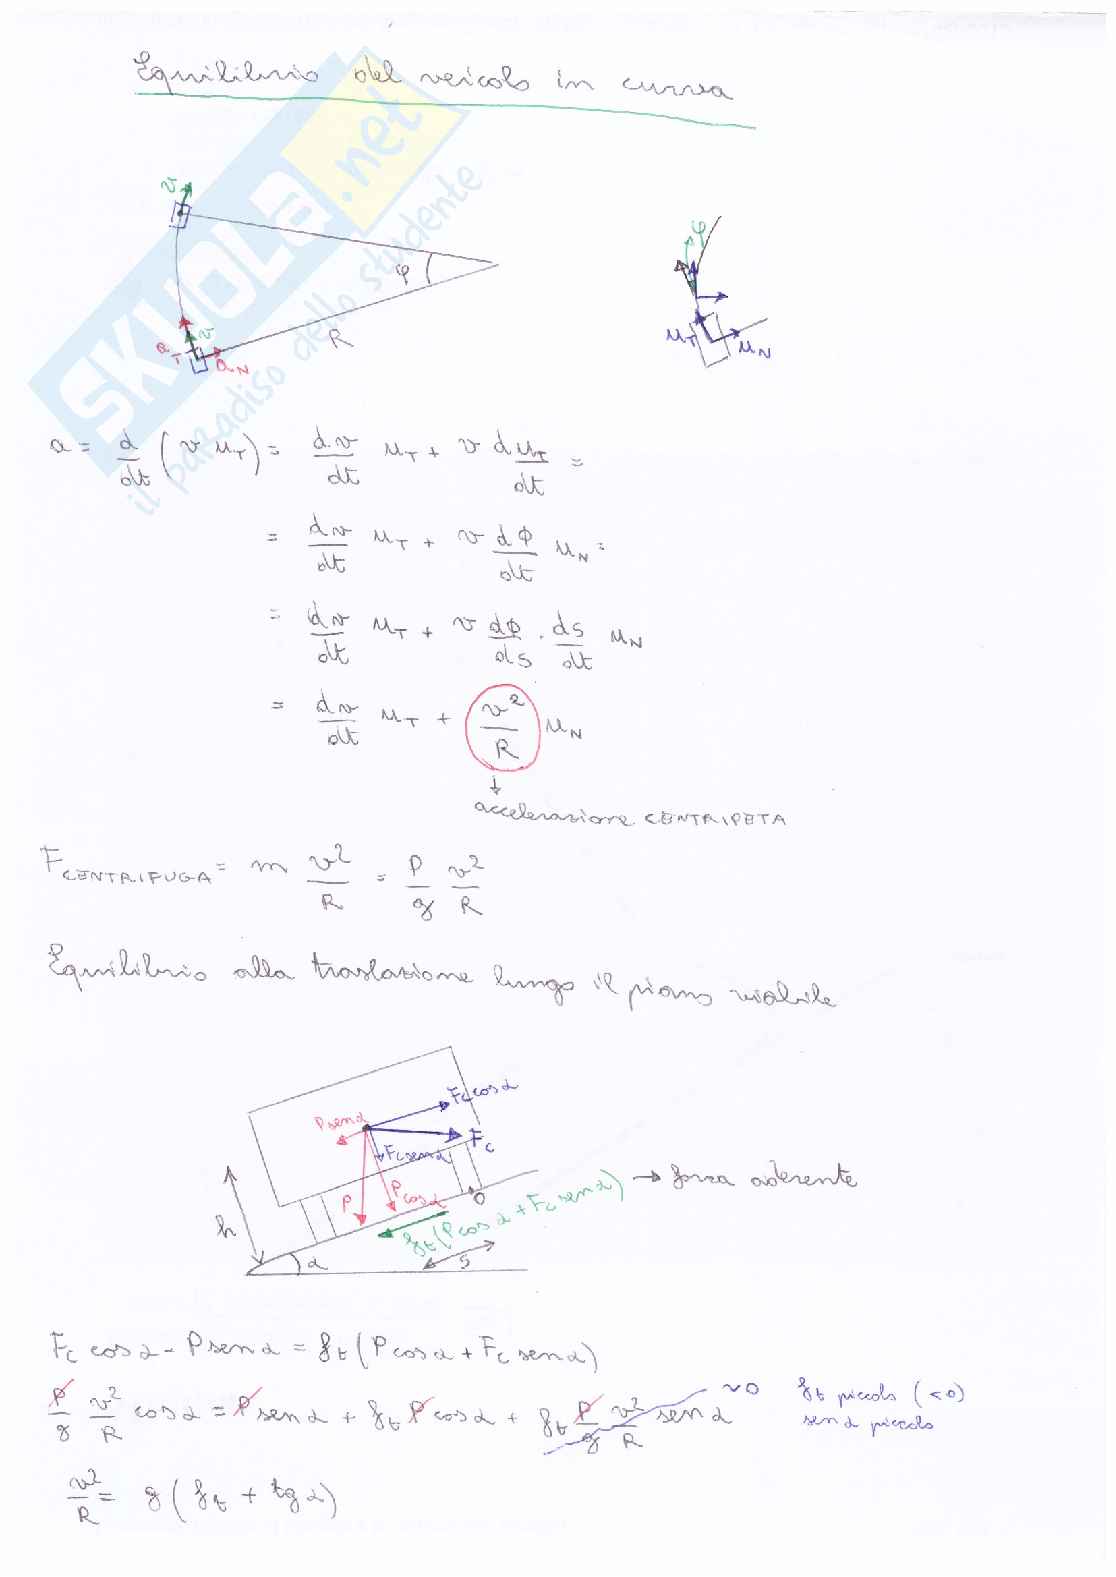 Equilibrio del veicolo in curva
SKUOLA.net
il paradiso dello studente
v
φ
R
v
a_T
a_N
φ
u_T
u_N
a = d/dt (v u_T) = dv/dt u_T + v du_T/dt =
= dv/dt u_T + v dΦ/dt u_N =
= dv/dt u_T + v dΦ/ds · ds/dt u_N
= dv/dt u_T + v²/R u_N
↓
accelerazione CENTRIPETA
F_CENTRIFUGA = m v²/R = P/g v²/R
Equilibrio alla traslazione lungo il piano viabile
F_c cos α
P sen α
F_c
F_c sen α
P
P cos α
O
h
f_t (P cos α + F_c sen α) → forza aderente
S
α
F_c cos α - P sen α = f_t (P cos α + F_c sen α)
P/g v²/R cos α = P sen α + f_t P cos α + f_t P/g v²/R sen α ~0 f_t piccolo (<0)
sen α piccolo
v²/R = g (f_t + tg α)